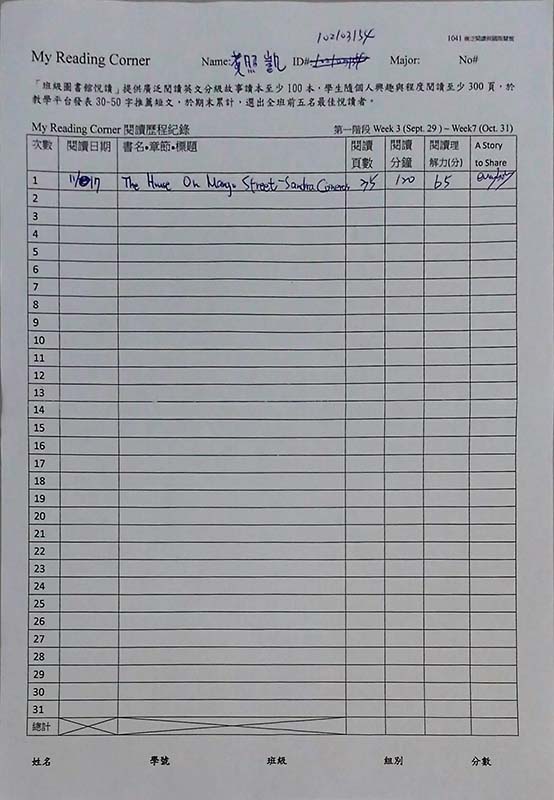 102103154
1041 廣泛閱讀與國際雙飽
My Reading Corner Name: 黃照凱 ID# Major: No#
「班級圖書館悅讀」提供廣泛閱讀英文分級故事讀本至少 100 本,學生隨個人興趣與程度閱讀至少 300 頁,於
教學平台發表 30-50 字推薦短文,於期末累計,選出全班前五名最佳悅讀者。
My Reading Corner 閱讀歷程紀錄 第一階段 Week 3 (Sept. 29 ) ~ Week7 (Oct. 31)
次數 閱讀日期 書名▪章節▪標題 閱讀頁數 閱讀分鐘 閱讀理解力(分) A Story to Share
1 11/17 The House On Mango Street-Sandra Cisneros 35 120 65
2
3
4
5
6
7
8
9
10
11
12
13
14
15
16
17
18
19
20
21
22
23
24
25
26
27
28
29
30
31
總計
姓名 學號 班級 組別 分數